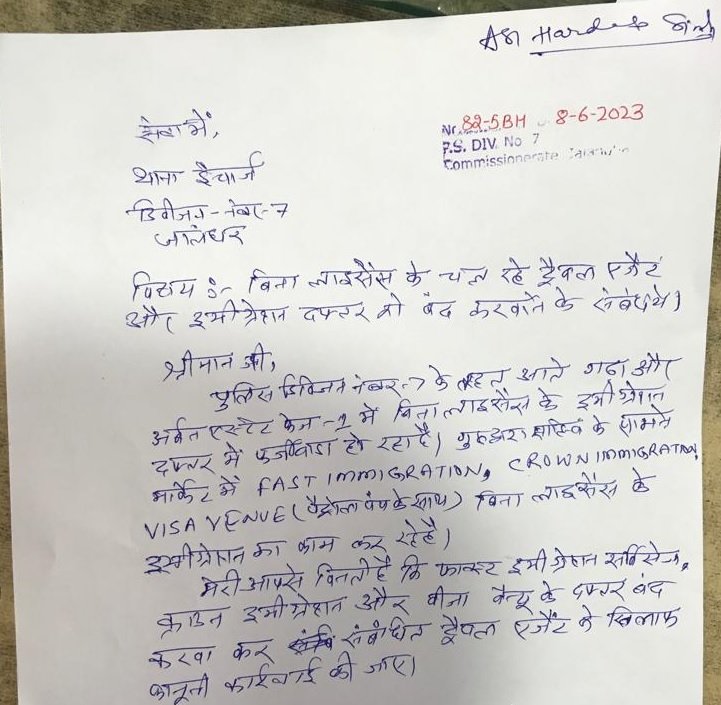 ASI Hardev Singh
सेवा में,
Nr. 82-5BH 8-6-2023
P.S. DIV. No 7
Commissionerate Jalandhar
थाना ईंचार्ज
डिवीजन-नंबर-7
जालंधर
विषय :- बिना लाइसैंस के चल रहे ट्रैवल एजैंट
और इमीग्रेशन दफ्तर को बंद करवाने के संबंध में।
श्रीमान जी,
पुलिस डिविजन नंबर-7 के तहत आते गढा और
अर्बन एस्टेट फेज-1 में बिना लाइसैंस के इमीग्रेशन
दफ्तर में फर्जीवाडा हो रहा है। गुरुद्वारा साहिब के सामने
मार्केट में FAST IMMIGRATION, CROWN IMMIGRATION,
VISA VENUE (पैट्रोल पंप के साथ) बिना लाइसैंस के
इमीग्रेशन का काम कर रहे है।
मेरी आपसे विनती है कि फास्ट इमीग्रेशन सर्विसेज,
क्राउन इमीग्रेशन और वीजा वेन्यू के दफ्तर बंद
करवा कर संबंधित ट्रैवल एजैंट के खिलाफ
कानूनी कार्रवाई की जाए।